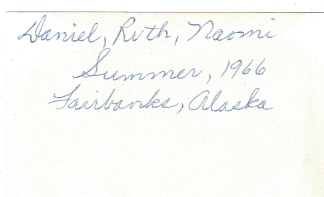 Daniel, Ruth, Naomi
Summer, 1966
Fairbanks, Alaska